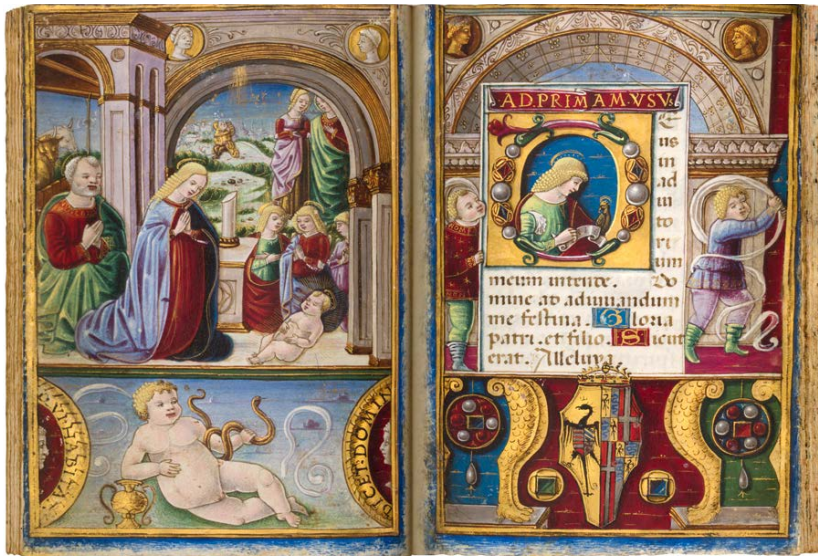 DICET DOMIN
AD.PRIMAM.VSV.
D e
us
in
ad
iu
to
ri
um
meum intente. Do
mine ad adiuuandum
me festina. Gloria
patri. et filio. Sicut
erat. Alleluya.